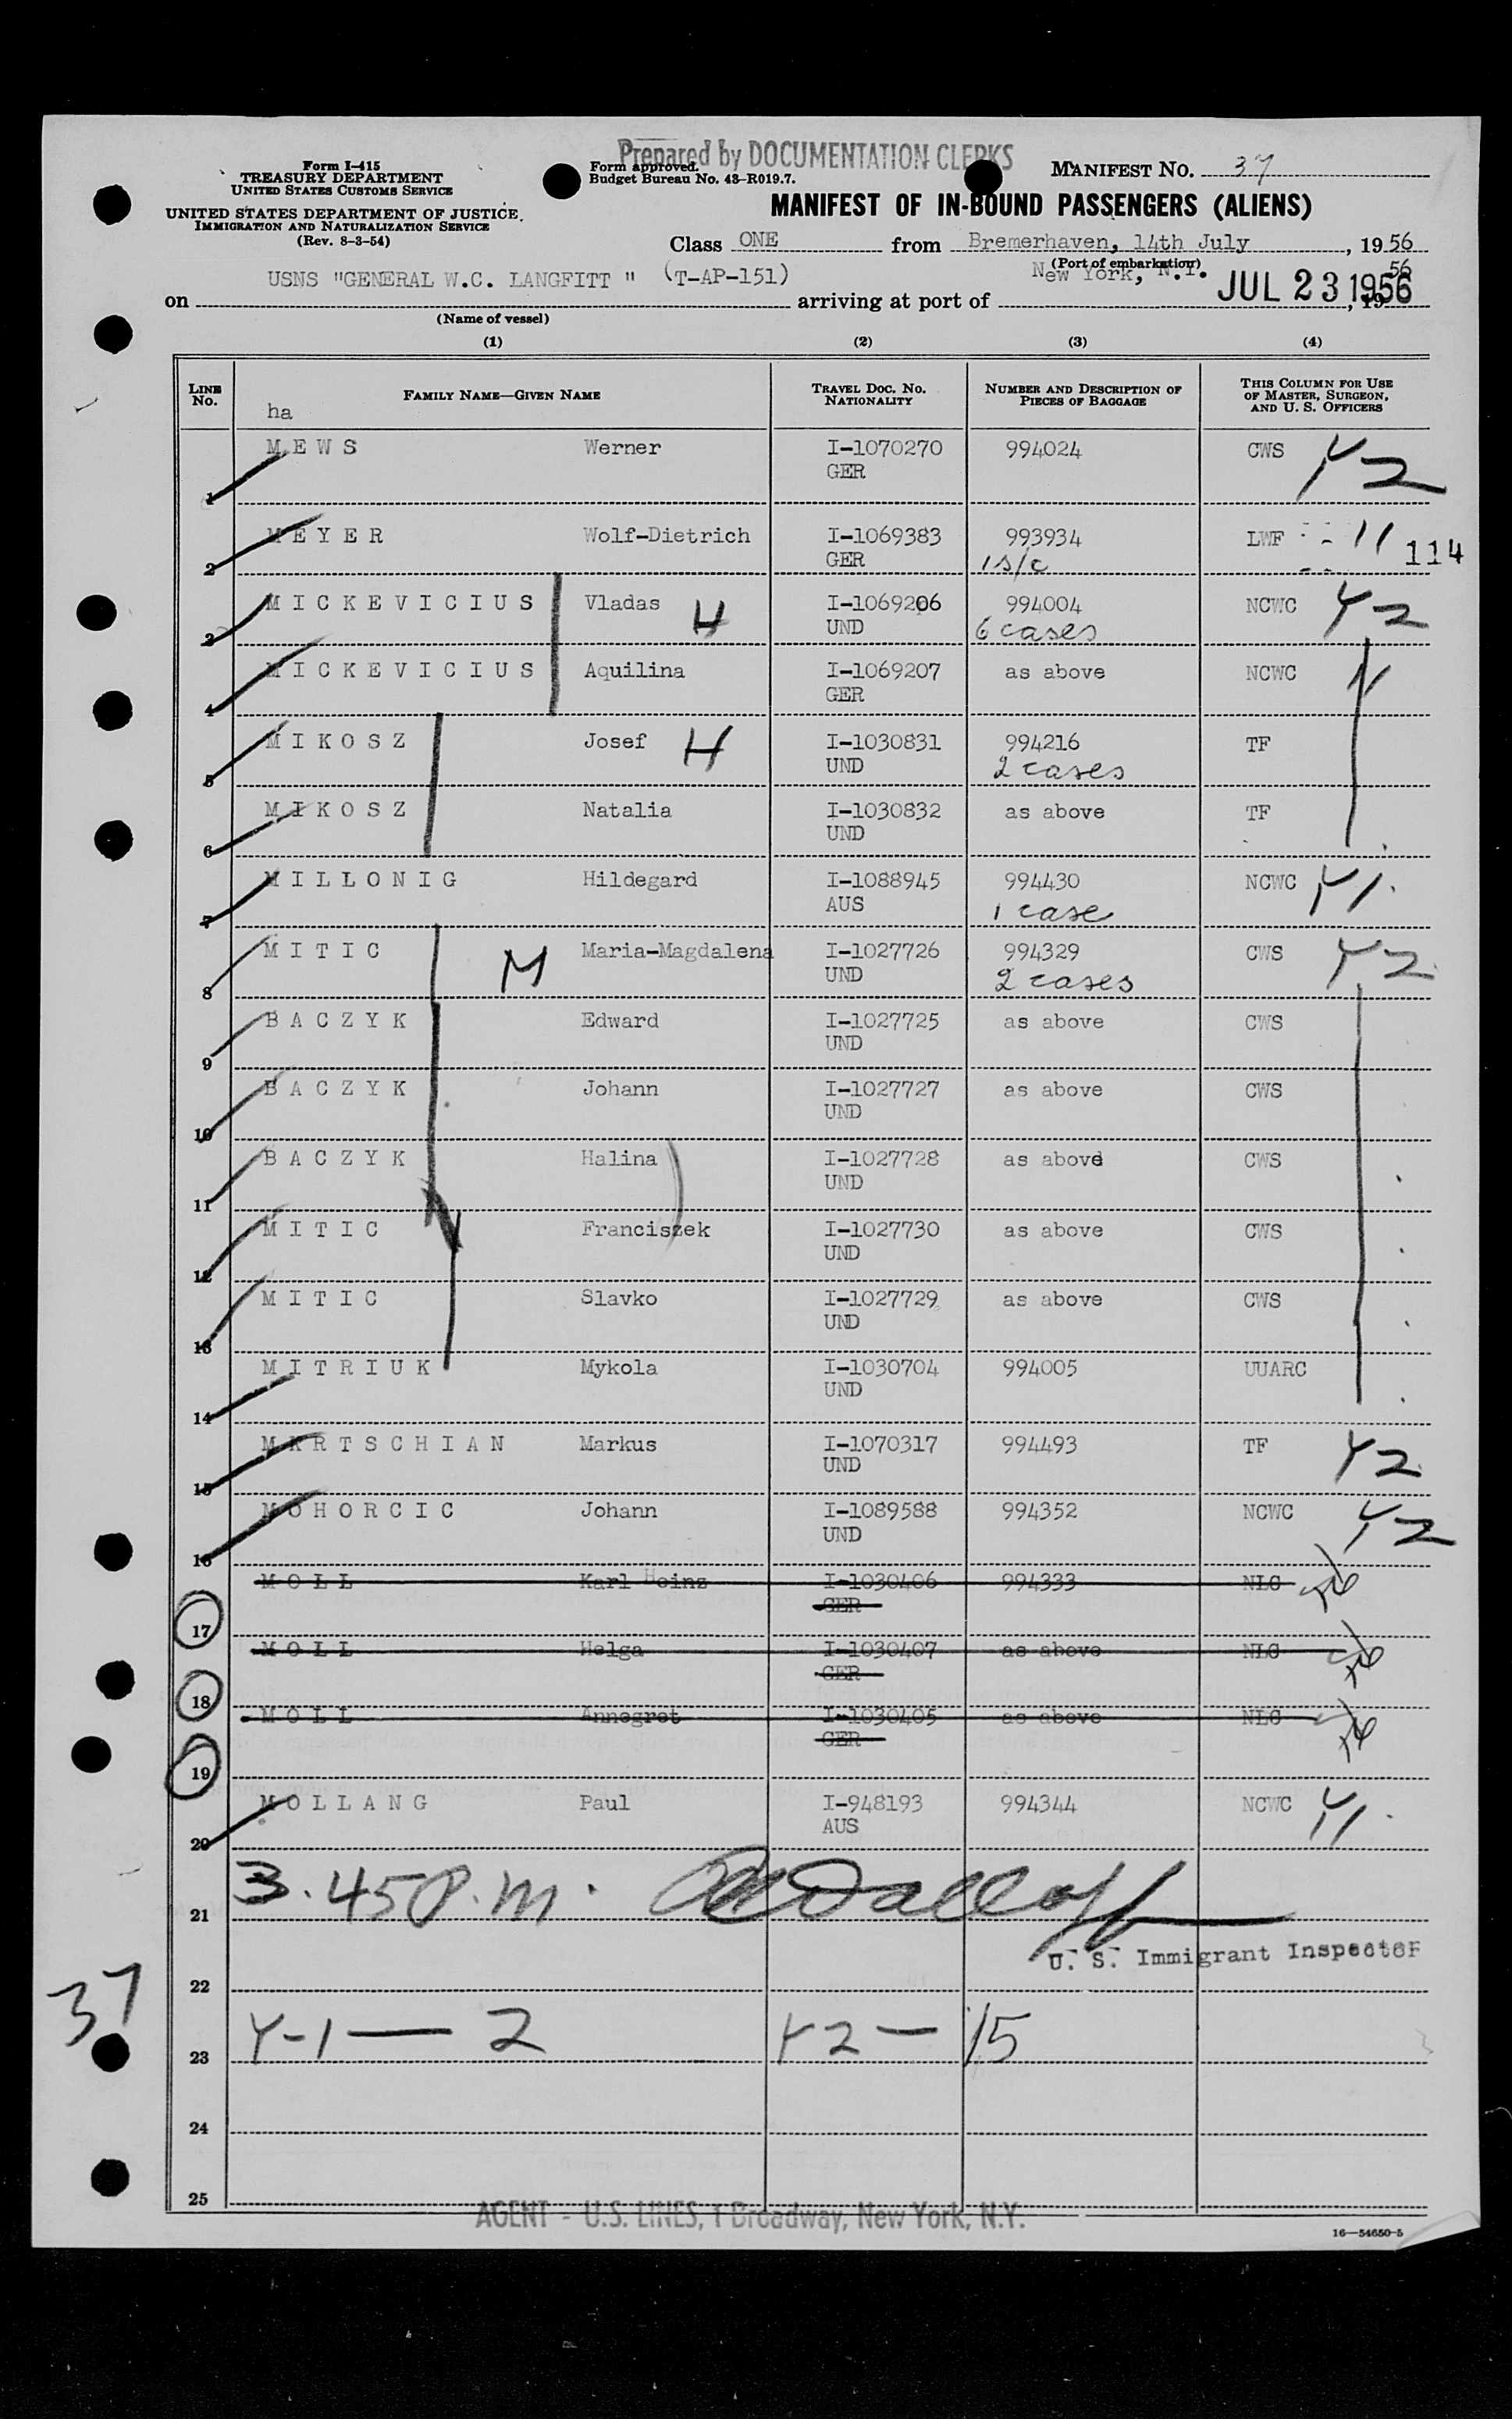 Prepared by DOCUMENTATION CLERKS
Form I-415
TREASURY DEPARTMENT
UNITED STATES CUSTOMS SERVICE
UNITED STATES DEPARTMENT OF JUSTICE
IMMIGRATION AND NATURALIZATION SERVICE
(Rev. 8-3-54)
Form approved.
Budget Bureau No. 43-R019.7.
MANIFEST NO. 37
MANIFEST OF IN-BOUND PASSENGERS (ALIENS)
Class ONE from Bremerhaven, 14th July, 1956
(Port of embarkation)
on USNS "GENERAL W.C. LANGFITT " (T-AP-151) arriving at port of New York, N.Y. JUL 23 1956, 1956
(Name of vessel)
(1) (2) (3) (4)
LINE NO. FAMILY NAME—GIVEN NAME TRAVEL DOC. NO. NATIONALITY NUMBER AND DESCRIPTION OF PIECES OF BAGGAGE THIS COLUMN FOR USE OF MASTER, SURGEON, AND U. S. OFFICERS
ha
1 MEWS Werner I-1070270 994024 CWS Y2
GER
2 MEYER Wolf-Dietrich I-1069383 993934 LWF 11 114
GER 1 s/c
3 MICKEVICIUS Vladas H I-1069206 994004 NCWC Y2
UND 6 cases
4 MICKEVICIUS Aquilina I-1069207 as above NCWC
GER
5 MIKOSZ Josef H I-1030831 994216 TF
UND 2 cases
6 MIKOSZ Natalia I-1030832 as above TF
UND
7 MILLONIG Hildegard I-1088945 994430 NCWC Y1.
AUS 1 case
8 MITIC M Maria-Magdalena I-1027726 994329 CWS Y2
UND 2 cases
9 BACZYK Edward I-1027725 as above CWS
UND
10 BACZYK Johann I-1027727 as above CWS
UND
11 BACZYK Halina I-1027728 as above CWS
UND
12 MITIC Franciszek I-1027730 as above CWS
UND
13 MITIC Slavko I-1027729 as above CWS
UND
14 MITRIUK Mykola I-1030704 994005 UUARC
UND
15 MKRTSCHIAN Markus I-1070317 994493 TF Y2
UND
16 MOHORCIC Johann I-1089588 994352 NCWC Y2
UND
17 MOLL Karl Heinz I-1030406 994333 NLC
GER
18 MOLL Helga I-1030407 as above NLC
GER
19 MOLL Annegret I-1030405 as above NLC
GER
20 MOLLANG Paul I-948193 994344 NCWC Y1.
AUS
21 3.45 P.m.
U. S. Immigrant Inspector
22
37
23 Y-1 — 2 Y2 — 15
24
25
AGENT - U.S. LINES, 1 Broadway, New York, N.Y.
16—54650-5